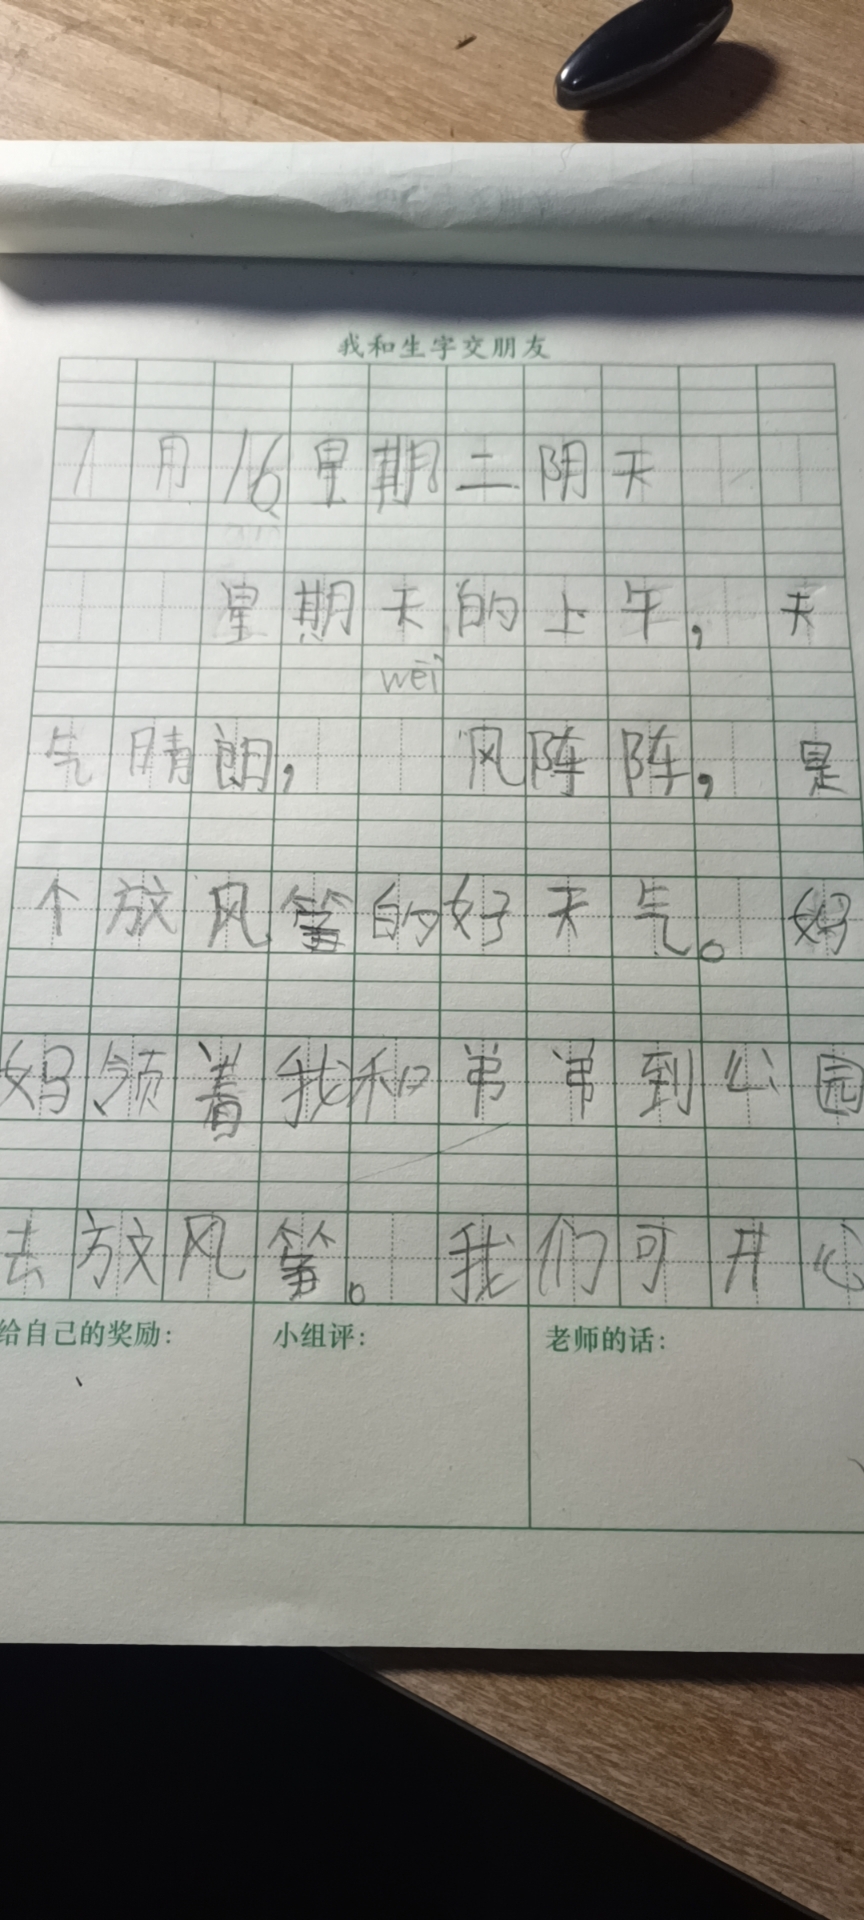 我和生字交朋友
1月16星期二阴天
星期天的上午，天
wēi
气晴朗，风阵阵，是
个放风筝的好天气。妈
妈领着我和弟弟到公园
去放风筝。我们可开心
给自己的奖励： 小组评： 老师的话：